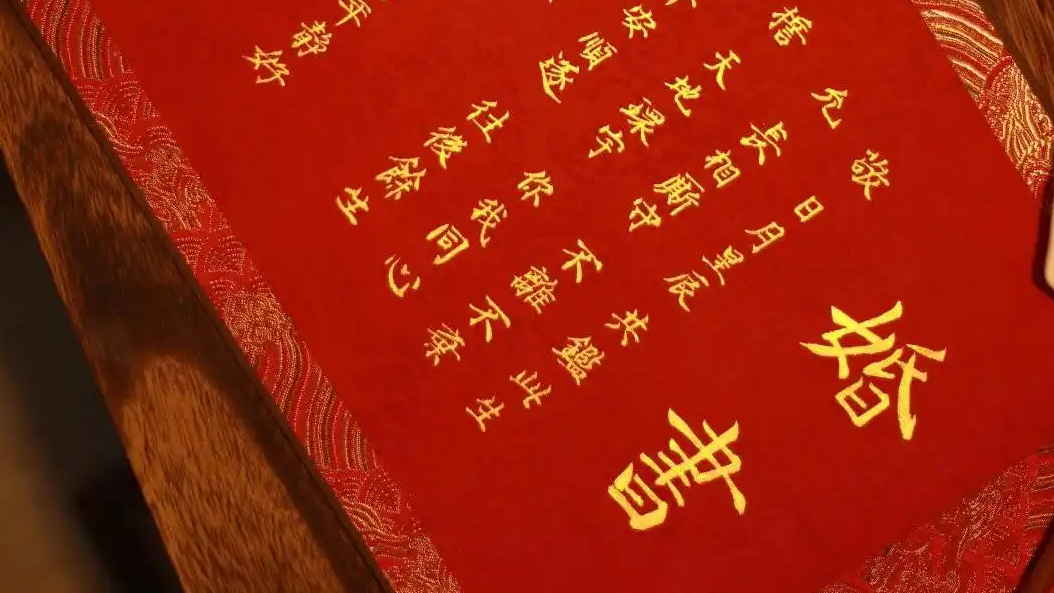 婚書
敬 日月星辰 共鑑此生
允 長相廝守 不離不棄
天地 字 你我同心
安順遂 往後餘生
年靜好